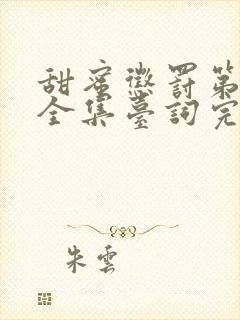 甜蜜懲罰第
全集臺詞完
朱雲